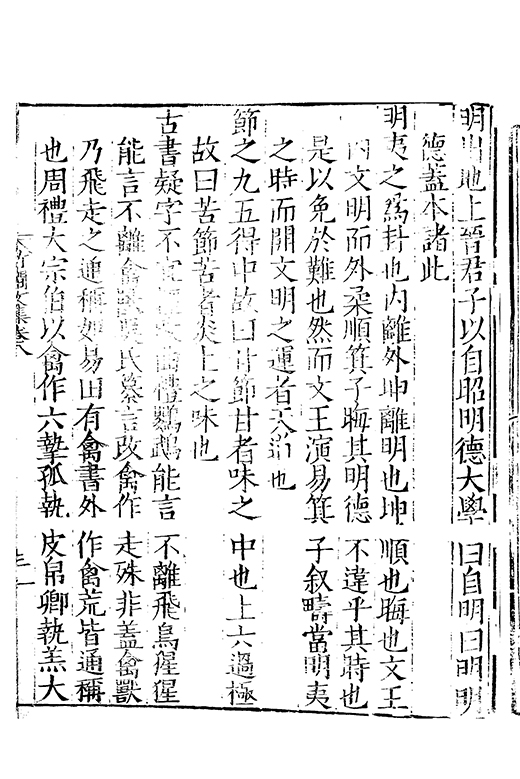 明出地上晉君子以自昭明德大學曰自明曰明明
德蓋本諸此
明夷之爲卦也内離外坤離明也坤順也晦也文王
内文明而外柔順箕子晦其明德不違乎其時也
是以免於難也然而文王演易箕子叙疇當明夷
之時而開文明之運者天也
節之九五得中故曰甘節甘者味之中也上六過極
故曰苦節苦者炎上之味也
古書疑字不宜改曲禮鸚鵡能言不離飛鳥猩猩
能言不離禽獸吳氏纂言改禽作走殊非蓋禽獸
乃飛走之通稱如易田有禽書外作禽荒皆通稱
也周禮大宗伯以禽作六摯孤執皮帛卿執羔大
竹澗文集卷八